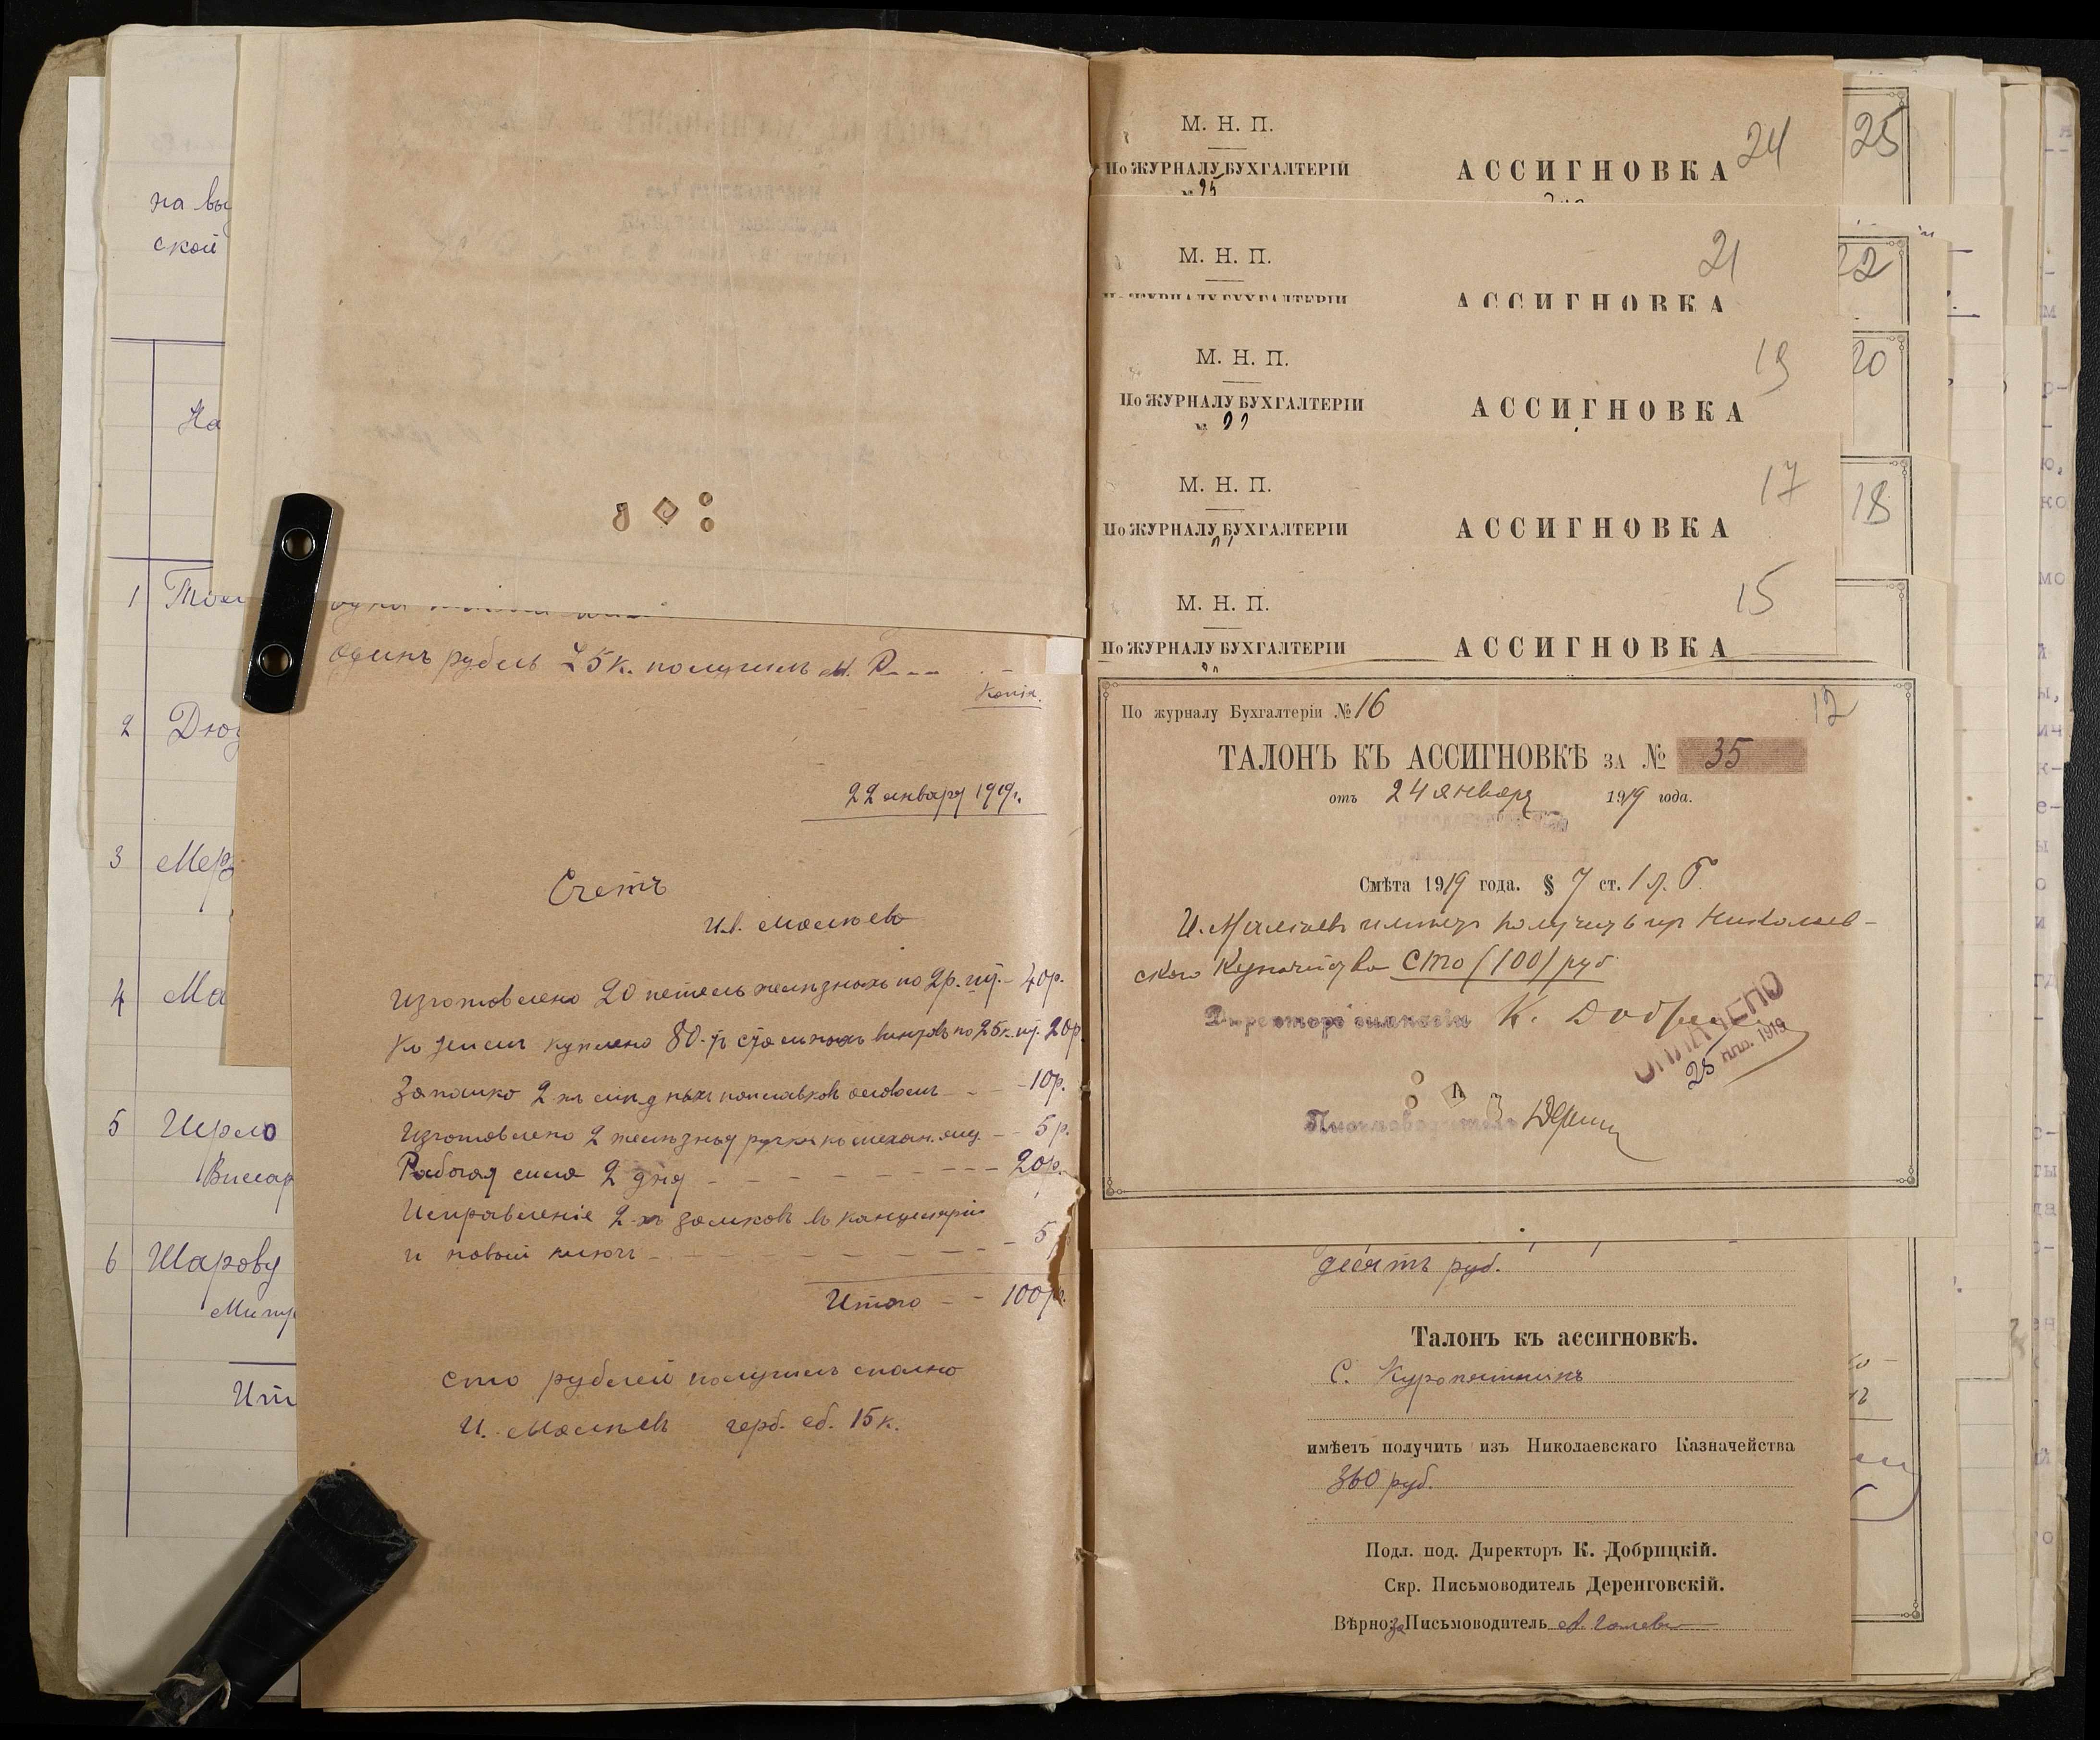 на вы
ской
На
1 Том
2 Дюд
3 Мер
4 Ма
5 Перло
Виссар
6 Шарову
Митр
Ит
одинъ рубль 25 к. получилъ
Копія.
22 января 1919 г.
Счетъ
Ив. Малѣевъ
Изготовлено 20 петель желѣзныхъ по 2 р. шт. - 40 р.
Къ нимъ куплено 80 стальныхъ винтовъ по 25 к. шт. 20 р.
Запаяно 2 мѣдныхъ поплавковъ оловомъ - - 10 р.
Изготовлено 2 желѣзныя ручки - - 5 р.
Рабочая сила 2 дня - - - - - - - - 20 р.
Исправленіе 2-хъ замковъ въ канцеляріи
и новый ключъ - - - - - - - - - 5
Итого - - 100 р.
сто рублей получилъ сполна
И. Малѣевъ герб. сб. 15 к.
М. Н. П.
24
25
По ЖУРНАЛУ БУХГАЛТЕРІИ
АССИГНОВКА
№ 25
М. Н. П.
21
22
По ЖУРНАЛУ БУХГАЛТЕРІИ
АССИГНОВКА
М. Н. П.
19
20
По ЖУРНАЛУ БУХГАЛТЕРІИ
АССИГНОВКА
М. Н. П.
17
18
По ЖУРНАЛУ БУХГАЛТЕРІИ
АССИГНОВКА
М. Н. П.
15
По ЖУРНАЛУ БУХГАЛТЕРІИ
АССИГНОВКА
По журналу Бухгалтеріи № 16
12
ТАЛОНЪ КЪ АССИГНОВКѢ ЗА № 35
отъ 24 января 1919 года.
Смѣта 1919 года. § 7 ст. 1 л. Б.
И. Малѣевъ имѣетъ получить изъ Николаев-
скаго Казначейства сто (100) руб
Директоръ гимназіи К. Добриц
ОПЛАЧЕНО
25 янв. 1919
Письмоводитель Дерен
десять руб.
Талонъ къ ассигновкѣ.
С. Куропятникъ
имѣетъ получить изъ Николаевскаго Казначейства
360 руб.
Подл. под. Директоръ К. Добрицкій.
Скр. Письмоводитель Деренговскій.
Вѣрно: за Письмоводитель